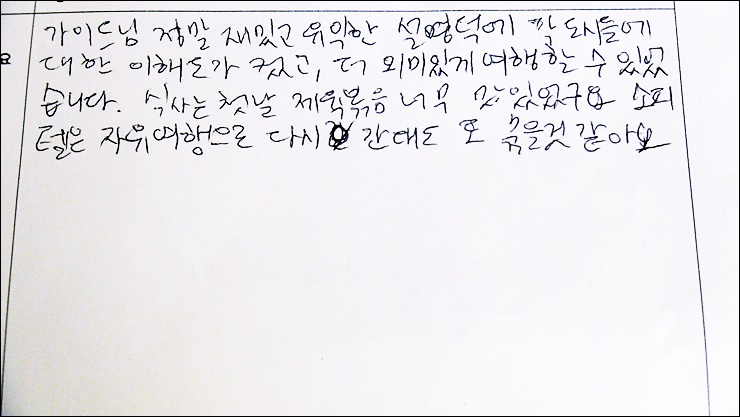 가이드님 정말 재밌고 유익한 설명덕에 각 도시들에
대한 이해도가 컸고, 더 의미있게 여행할 수 있었
습니다. 식사는 첫날 제육볶음 너무 맛있었구요 소피
텔은 자유여행으로 다시 간대도 또 묵을것 같아요